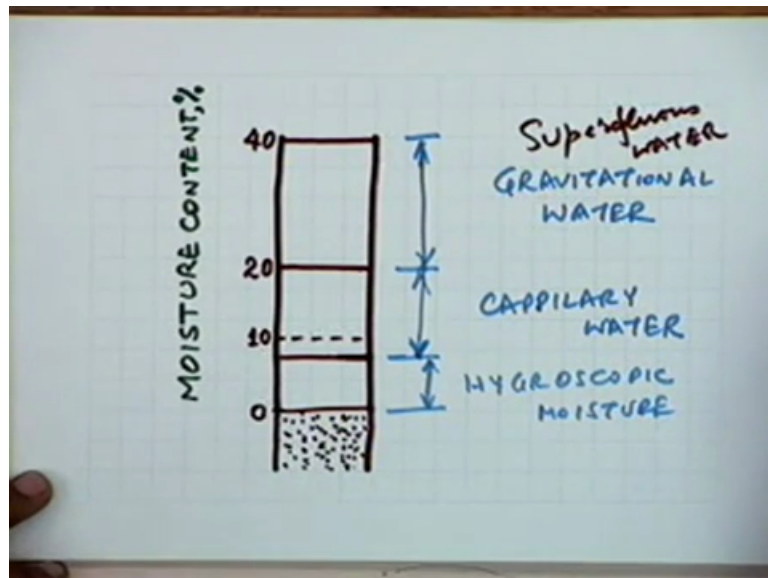 MOISTURE CONTENT,%
40
20
10
0
Superfluous
WATER
GRAVITATIONAL
WATER
CAPPILARY
WATER
HYGROSCOPIC
MOISTURE